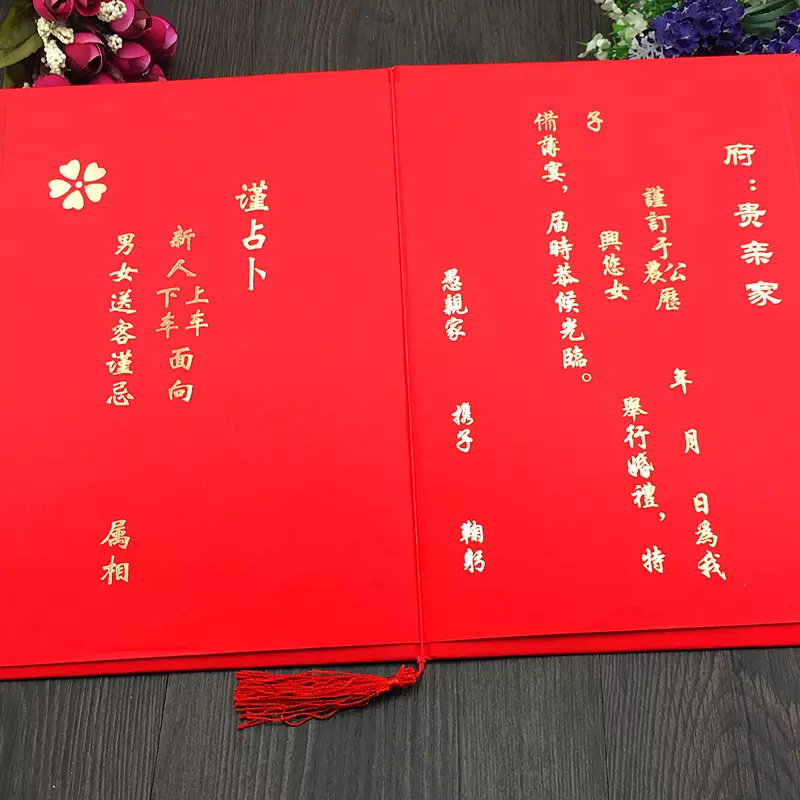 府：贵亲家
謹訂于公農歷 年 月 日為我
子 興您女 舉行婚禮，特
備薄宴，届時恭候光臨。
愚親家 携子 鞠躬
谨占卜
新人上车下车面向
男女送客谨忌 属相